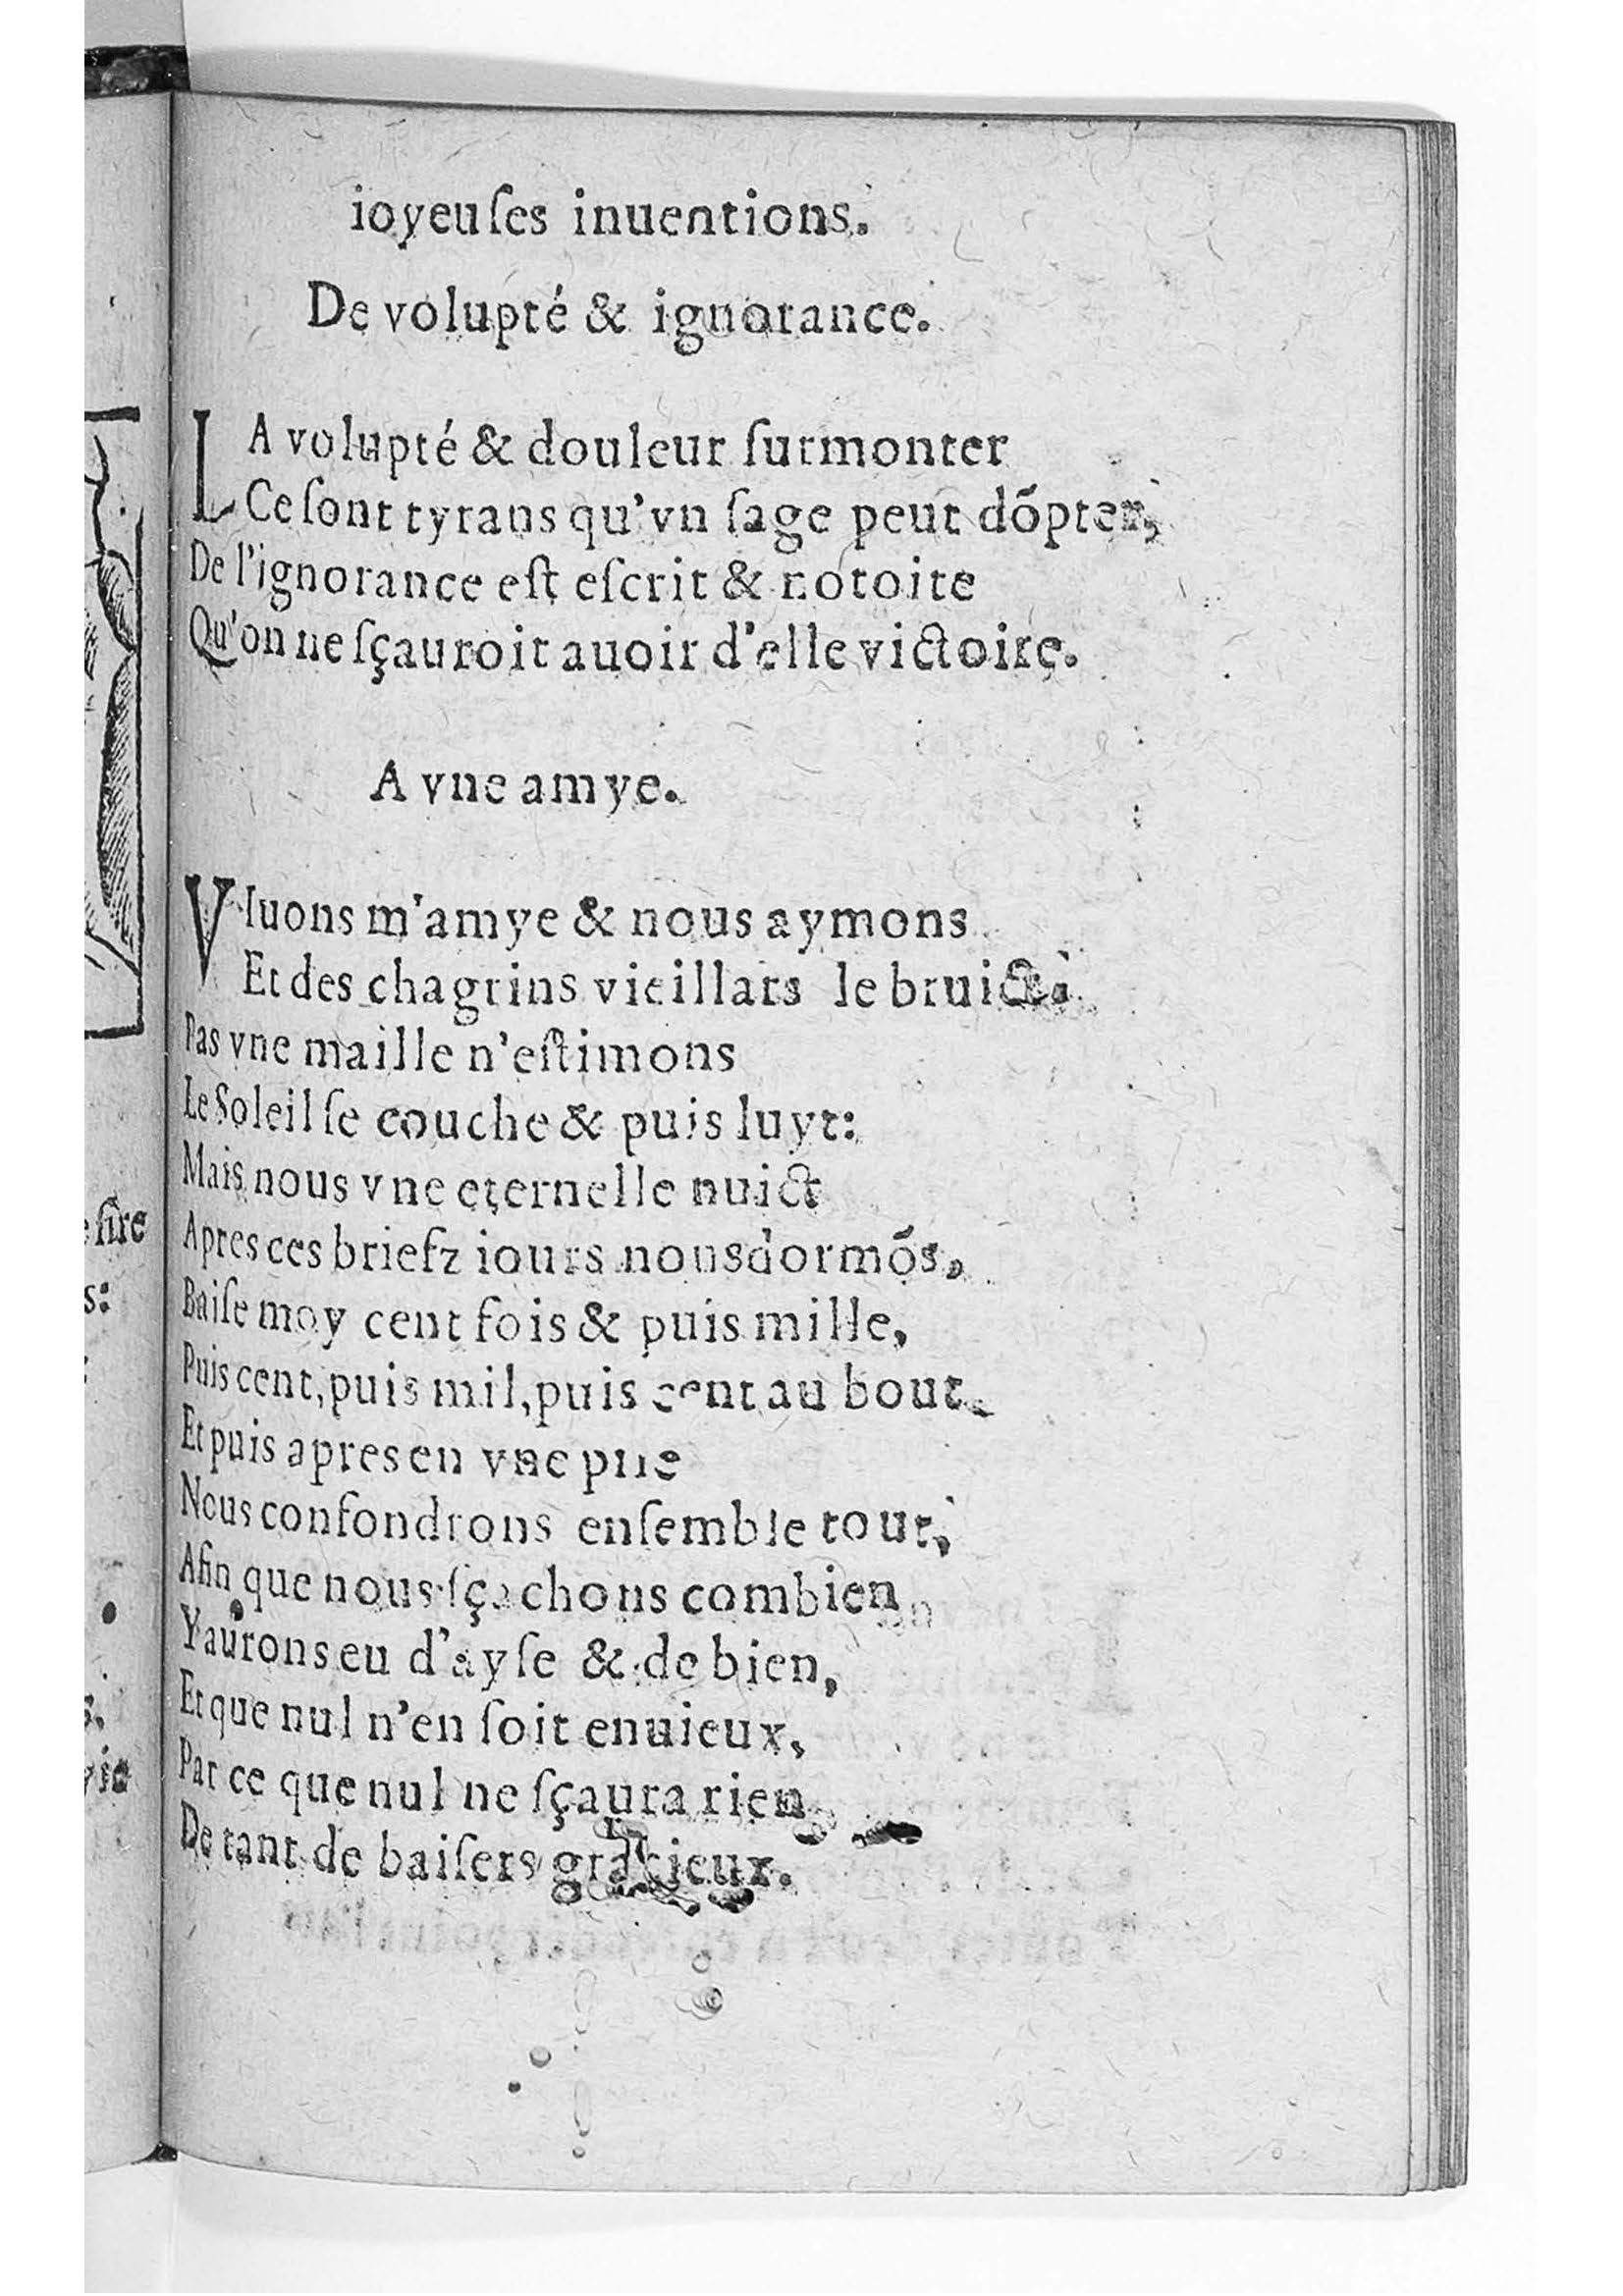 ioyeuſes inuentions.
De volupté & ignorance.
LA volupté & douleur ſurmonter
Ce ſont tyrans qu'vn ſage peut dõpter,
De l'ignorance eſt eſcrit & notoire
Qu'on ne ſçauroit auoir d'elle victoire.
A vne amye.
VIuons m'amye & nous aymons
Et des chagrins vieillars le bruict,
Pas vne maille n'eſtimons
Le Soleil ſe couche & puis luyt:
Mais nous vne eternelle nuict
Apres ces briefz iours nous dormõs,
Baiſe moy cent fois & puis mille,
Puis cent, puis mil, puis cent au bout
Et puis apres en vne
Nous confondrons enſemble tout,
Afin que nous ſçachons combien
Y aurons eu d'ayſe & de bien,
Et que nul n'en ſoit enuieux,
Par ce que nul ne ſçaura rien
De tant de baiſers gracieux.